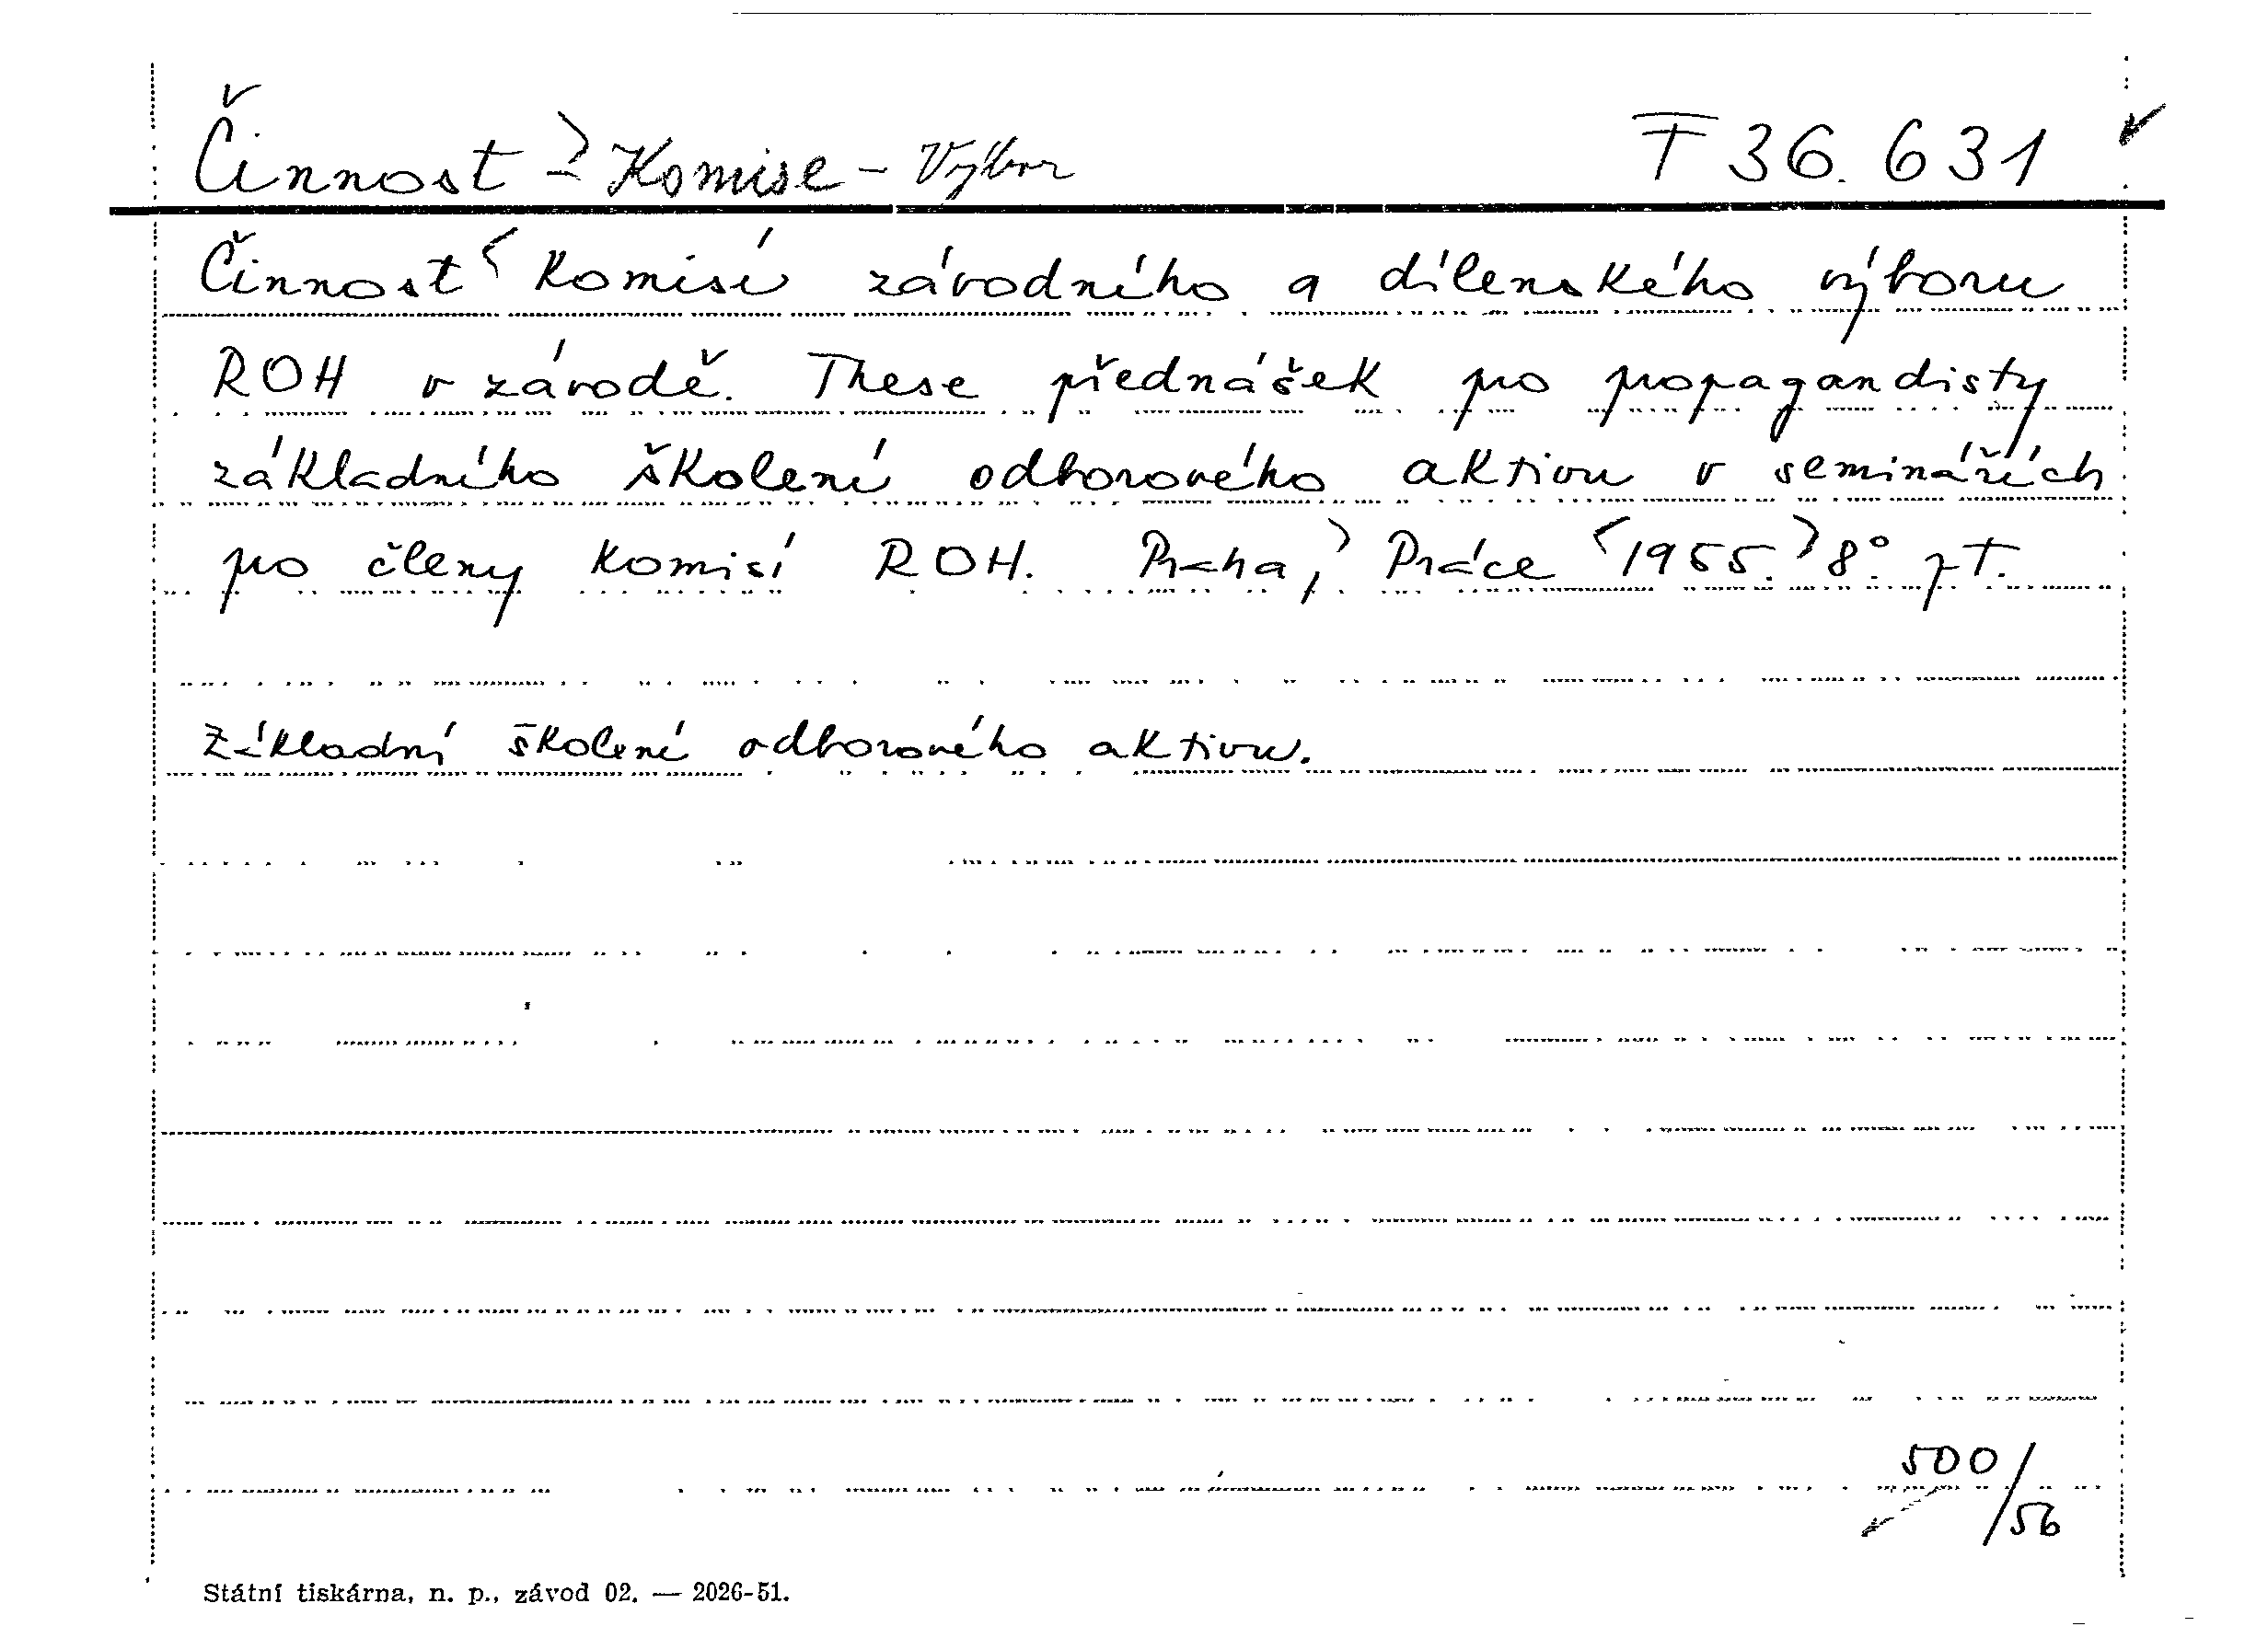 Činnost - Komise - Výbor F 36.631
Činnost komisí závodního a dílenského výboru
ROH v závodě. These přednášek pro propagandisty
základního školení odborového aktivu v seminářích
pro členy komisí ROH. Praha, Práce 1955. 8°.
Základní školení odborového aktivu.
500/56
Státní tiskárna, n. p., závod 02. — 2026-51.